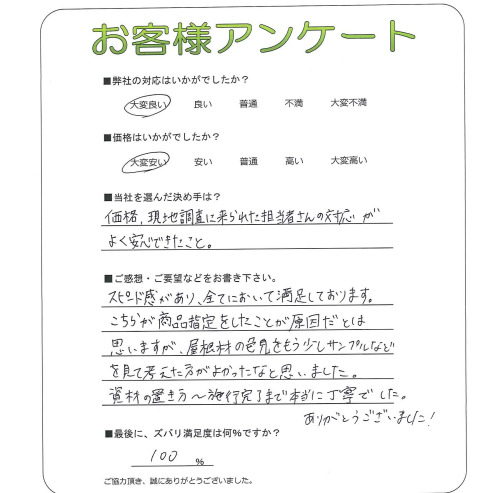 お客様アンケート
■弊社の対応はいかがでしたか?
大変良い 良い 普通 不満 大変不満
■価格はいかがでしたか?
大変安い 安い 普通 高い 大変高い
■当社を選んだ決め手は?
価格、現地調査に来られた担当者さんの対応が
よく安心できたこと。
■ご感想・ご要望などをお書き下さい。
スピード感があり、全てにおいて満足しております。
こちらが商品指定をしたことが原因だとは
思いますが、屋根材の色見をもう少しサンプルなど
を見て考えた方がよかったなと思いました。
資材の置き方〜施行完了まで本当に丁寧でした。
ありがとうございました!
■最後に、ズバリ満足度は何%ですか?
100 %
ご協力頂き、誠にありがとうございました。